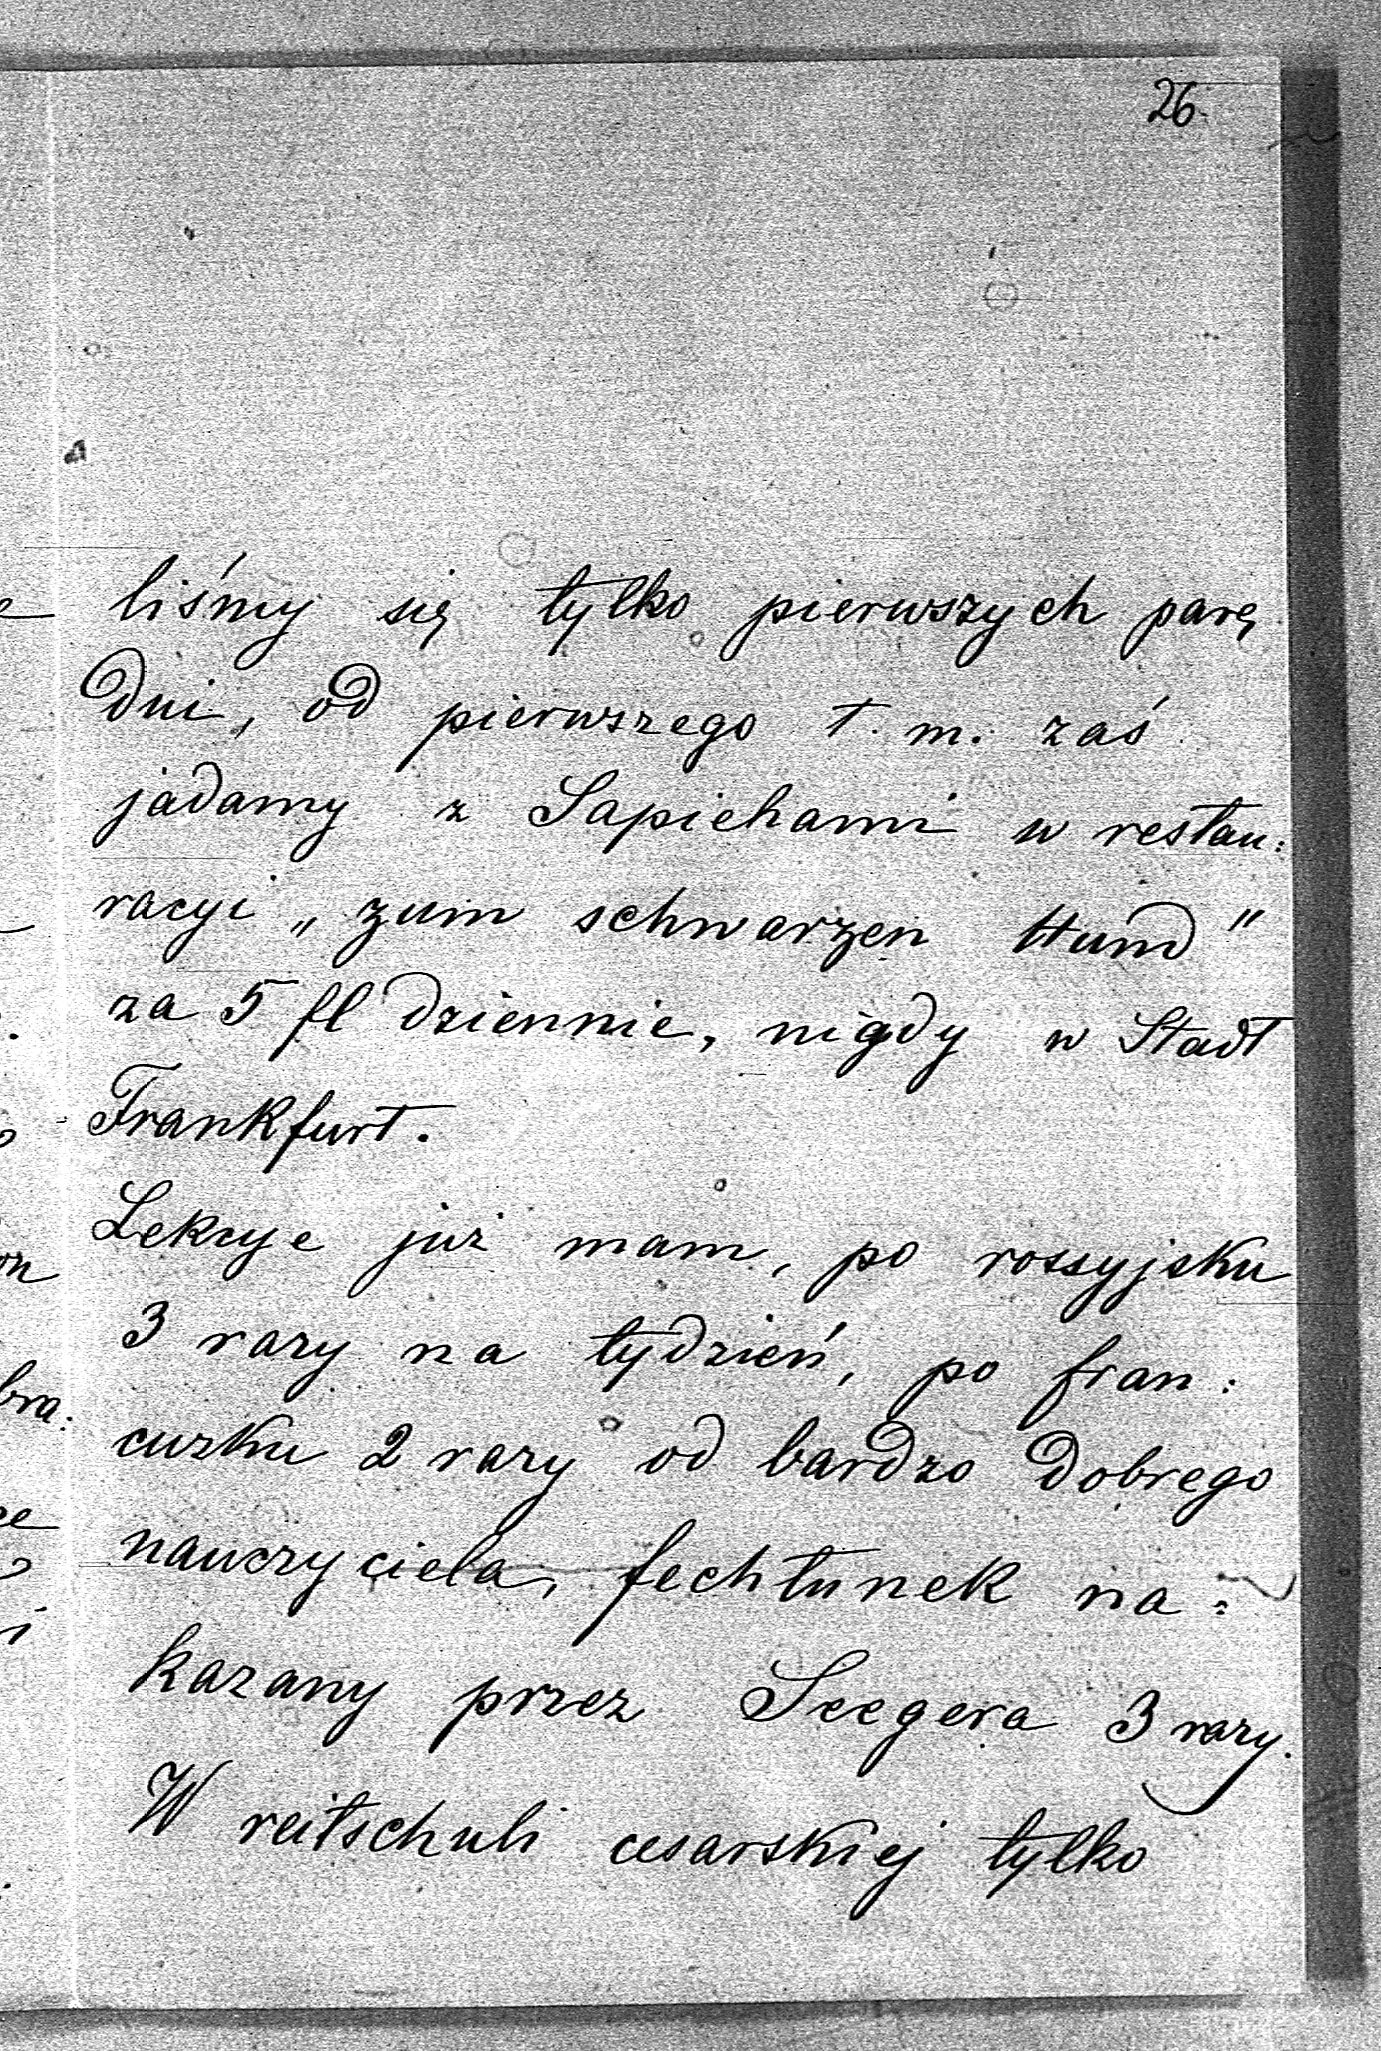 26.
liśmy się tylko pierwszych parę
dni, od pierwszego t. m. zaś
jadamy z Sapiehami w restau:
racyi „zum schwarzen Hund"
za 5 fl dziennie, nigdy w Stadt
Frankfurt.
Lekcye już mam, po rossyjsku
3 razy na tydzień, po fran:
cuzku 2 razy od bardzo dobrego
nauczyciela, fechtunek na:
kazany przez Seegera 3 razy.
W reitschuli cesarskiej tylko